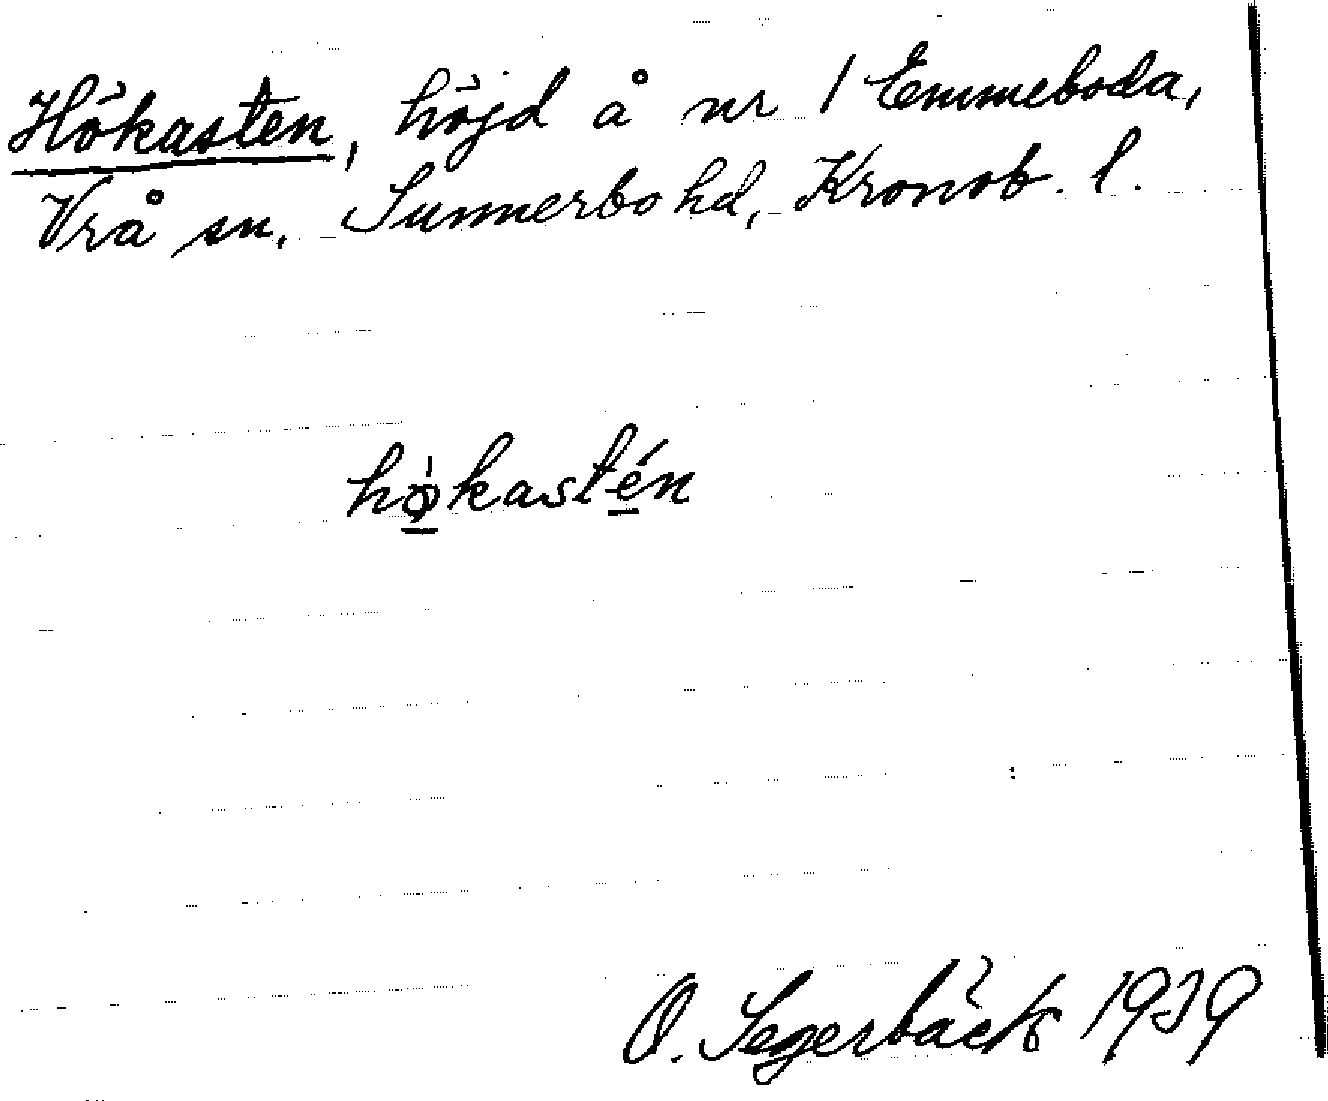 Hökasten, höjd å nr 1 Emmeboda,
Vrå sn. Sunnerbo hd, Kronob. l.
hø̀kastén
O. Segerbäck 1939